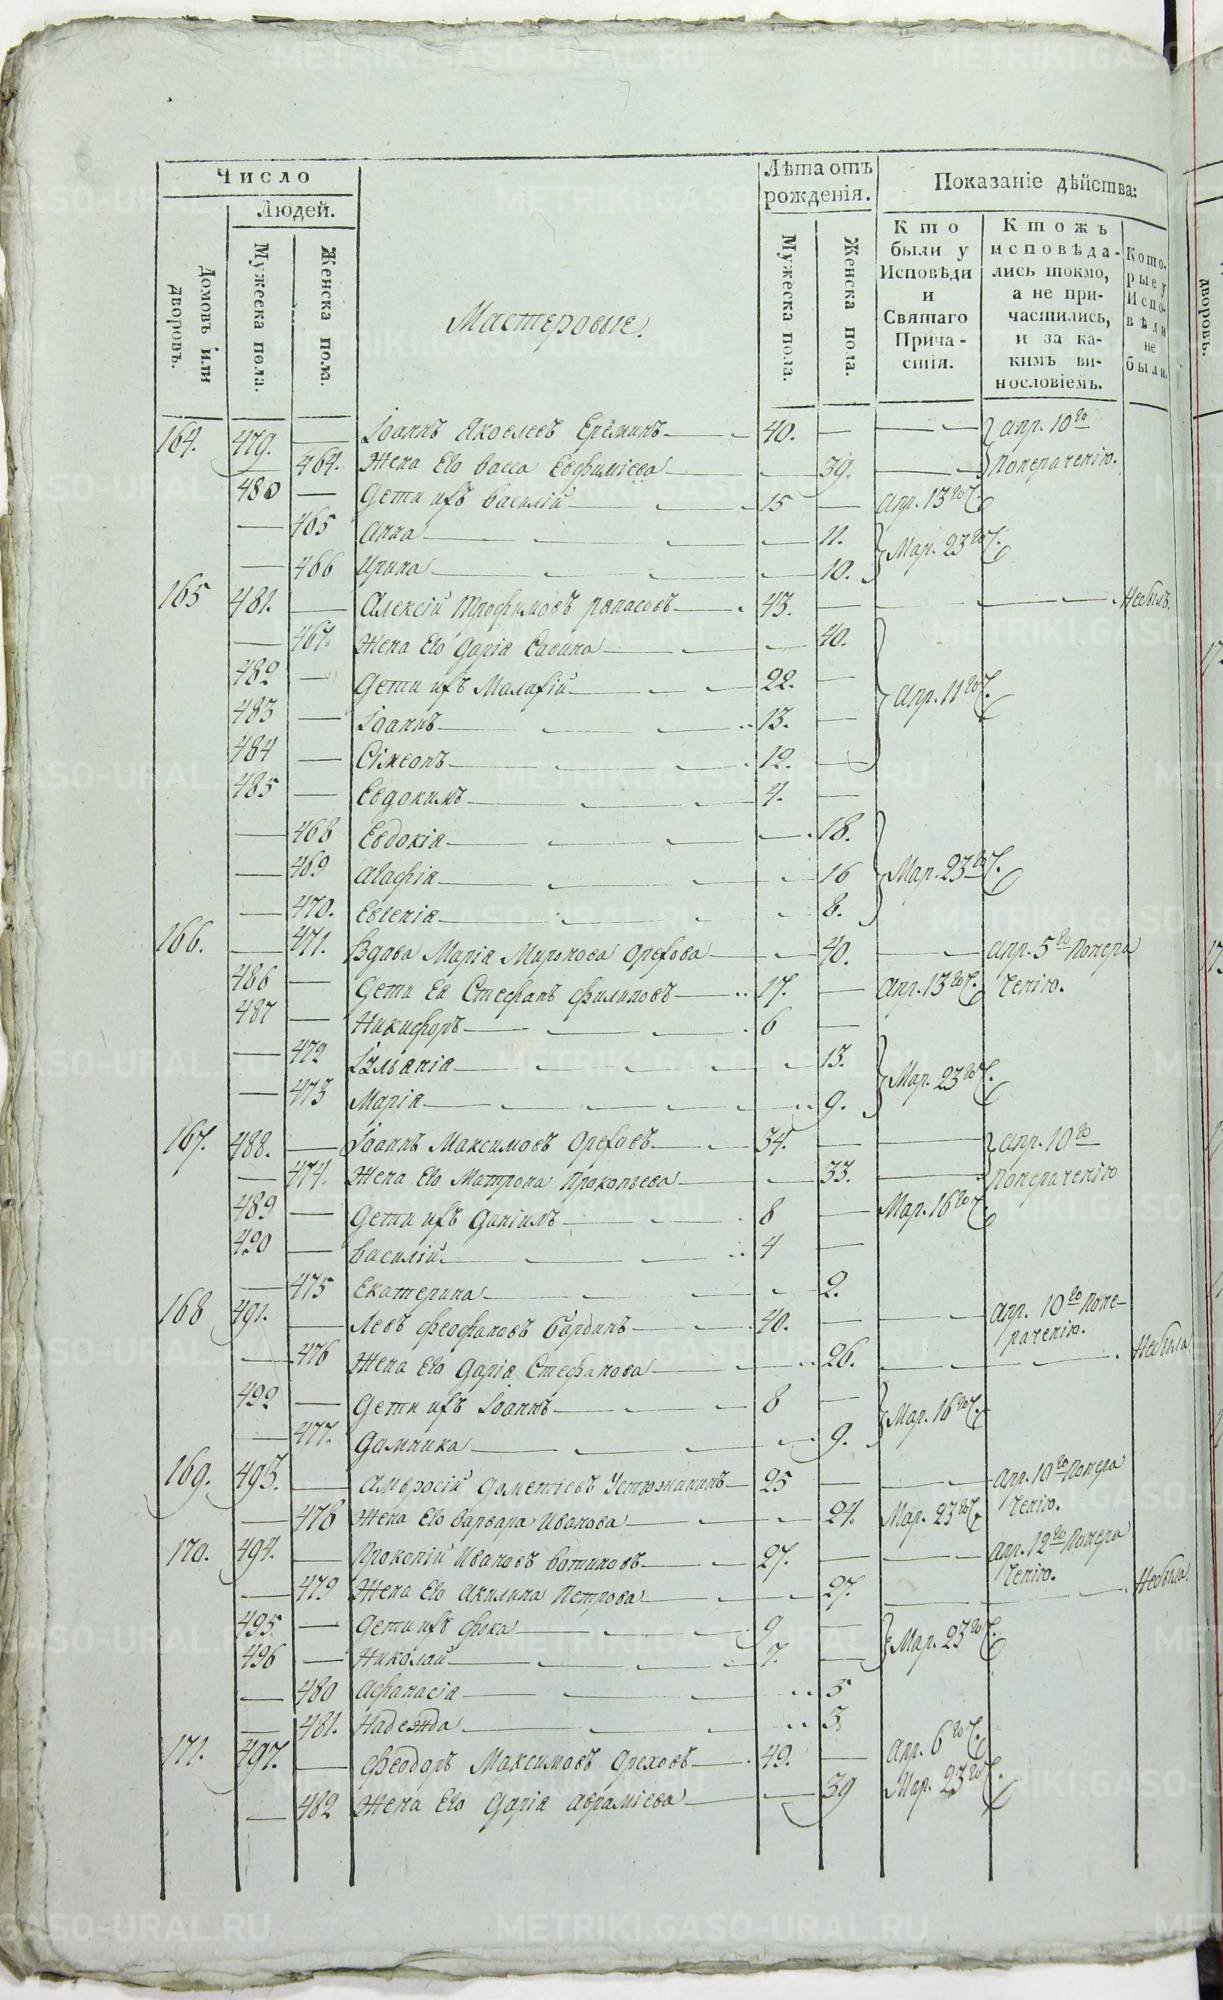 Число
Людей.
Домовъ или дворовъ.
Мужеска пола.
Женска пола.
Мастеровые.
Лѣта отъ рожденія.
Мужеска пола.
Женска пола.
Показаніе дѣйства:
Кто были у Исповѣди и Святаго Прича-стія.
Ктожъ исповѣда-лись токмо, а не при-частились, и за ка-кимъ ви-нословіемъ.
Кото-рые у Испо-вѣди не были.
164. 479. — Іоаннъ Яковлевъ Ереминъ — 40. — — Апр. 10го
— 464. Жена Его Васса Евфиміева — 39. — Понераченію.
480 — Дети ихъ Василій — 15 — Апр. 13го
— 465 Анна — 11. Мар. 23го
— 466 Ирина — 10.
165 481. — Алексій Трофимовъ — 43. — — — Небылъ.
— 467. Жена Его Дарія Савина — 40.
482 — Дети ихъ Малахій — 22. — Апр. 11го
483 — Іоаннъ — 13. —
484 — Сімеонъ — 12. —
485 — Евдокимъ — 4. —
— 468 Евдокія — 18.
— 469 Агафія — 16 Мар. 23го
— 470. Евгенія — 8.
166. — 471. Вдова Марія Миронова Орехова — 40. — Апр. 5го Понера
486 — Дети Ея Стефанъ Филиповъ — 17. — Апр. 13го ченію.
487 — Никифоръ — 6 —
— 472 Іуліанія — 13. Мар. 23го
— 473 Марія — 9.
167. 488. — Іоаннъ Максимовъ Ореховъ — 34. — — Апр. 10го
— 474. Жена Его Матрона Прокопьева — 33. — Понераченію
489 — Дети ихъ Даніилъ — 8 — Мар. 16го
490 — Василій — 4 —
— 475 Екатерина — 2.
168 491. — Левъ Феофановъ Бардинъ — 40. — — Апр. 10го Поне-
раченію.
— 476 Жена Его Дарія Стефанова — 26. — — Небыла
492 — Дети ихъ Іоаннъ — 8 — Мар. 16го
— 477. Домника — 9.
169. 493. — Амвросій Дометіевъ Устюжанинъ — 25 — — Апр. 10го Понера
ченію.
— 478 Жена Его Варвара Иванова — 24. Мар. 23го
170. 494. — Прокопій Ивановъ Ботиновъ — 27. — — Апр. 12го Понера
ченію.
— 479 Жена Его Акилина Петрова — 27. — — Небыла
495. — Дети ихъ Фока — 9 — Мар. 23го
496 — Николай — 7. —
— 480 Афанасія — 5
— 481. Надежда — 3
171. 497. — Феодоръ Максимовъ Ореховъ — 49. — Апр. 6го
— 482 Жена Его Дарія Авраміева — 39 Мар. 23го
дворовъ.
METRIKI.GASO-URAL.RU